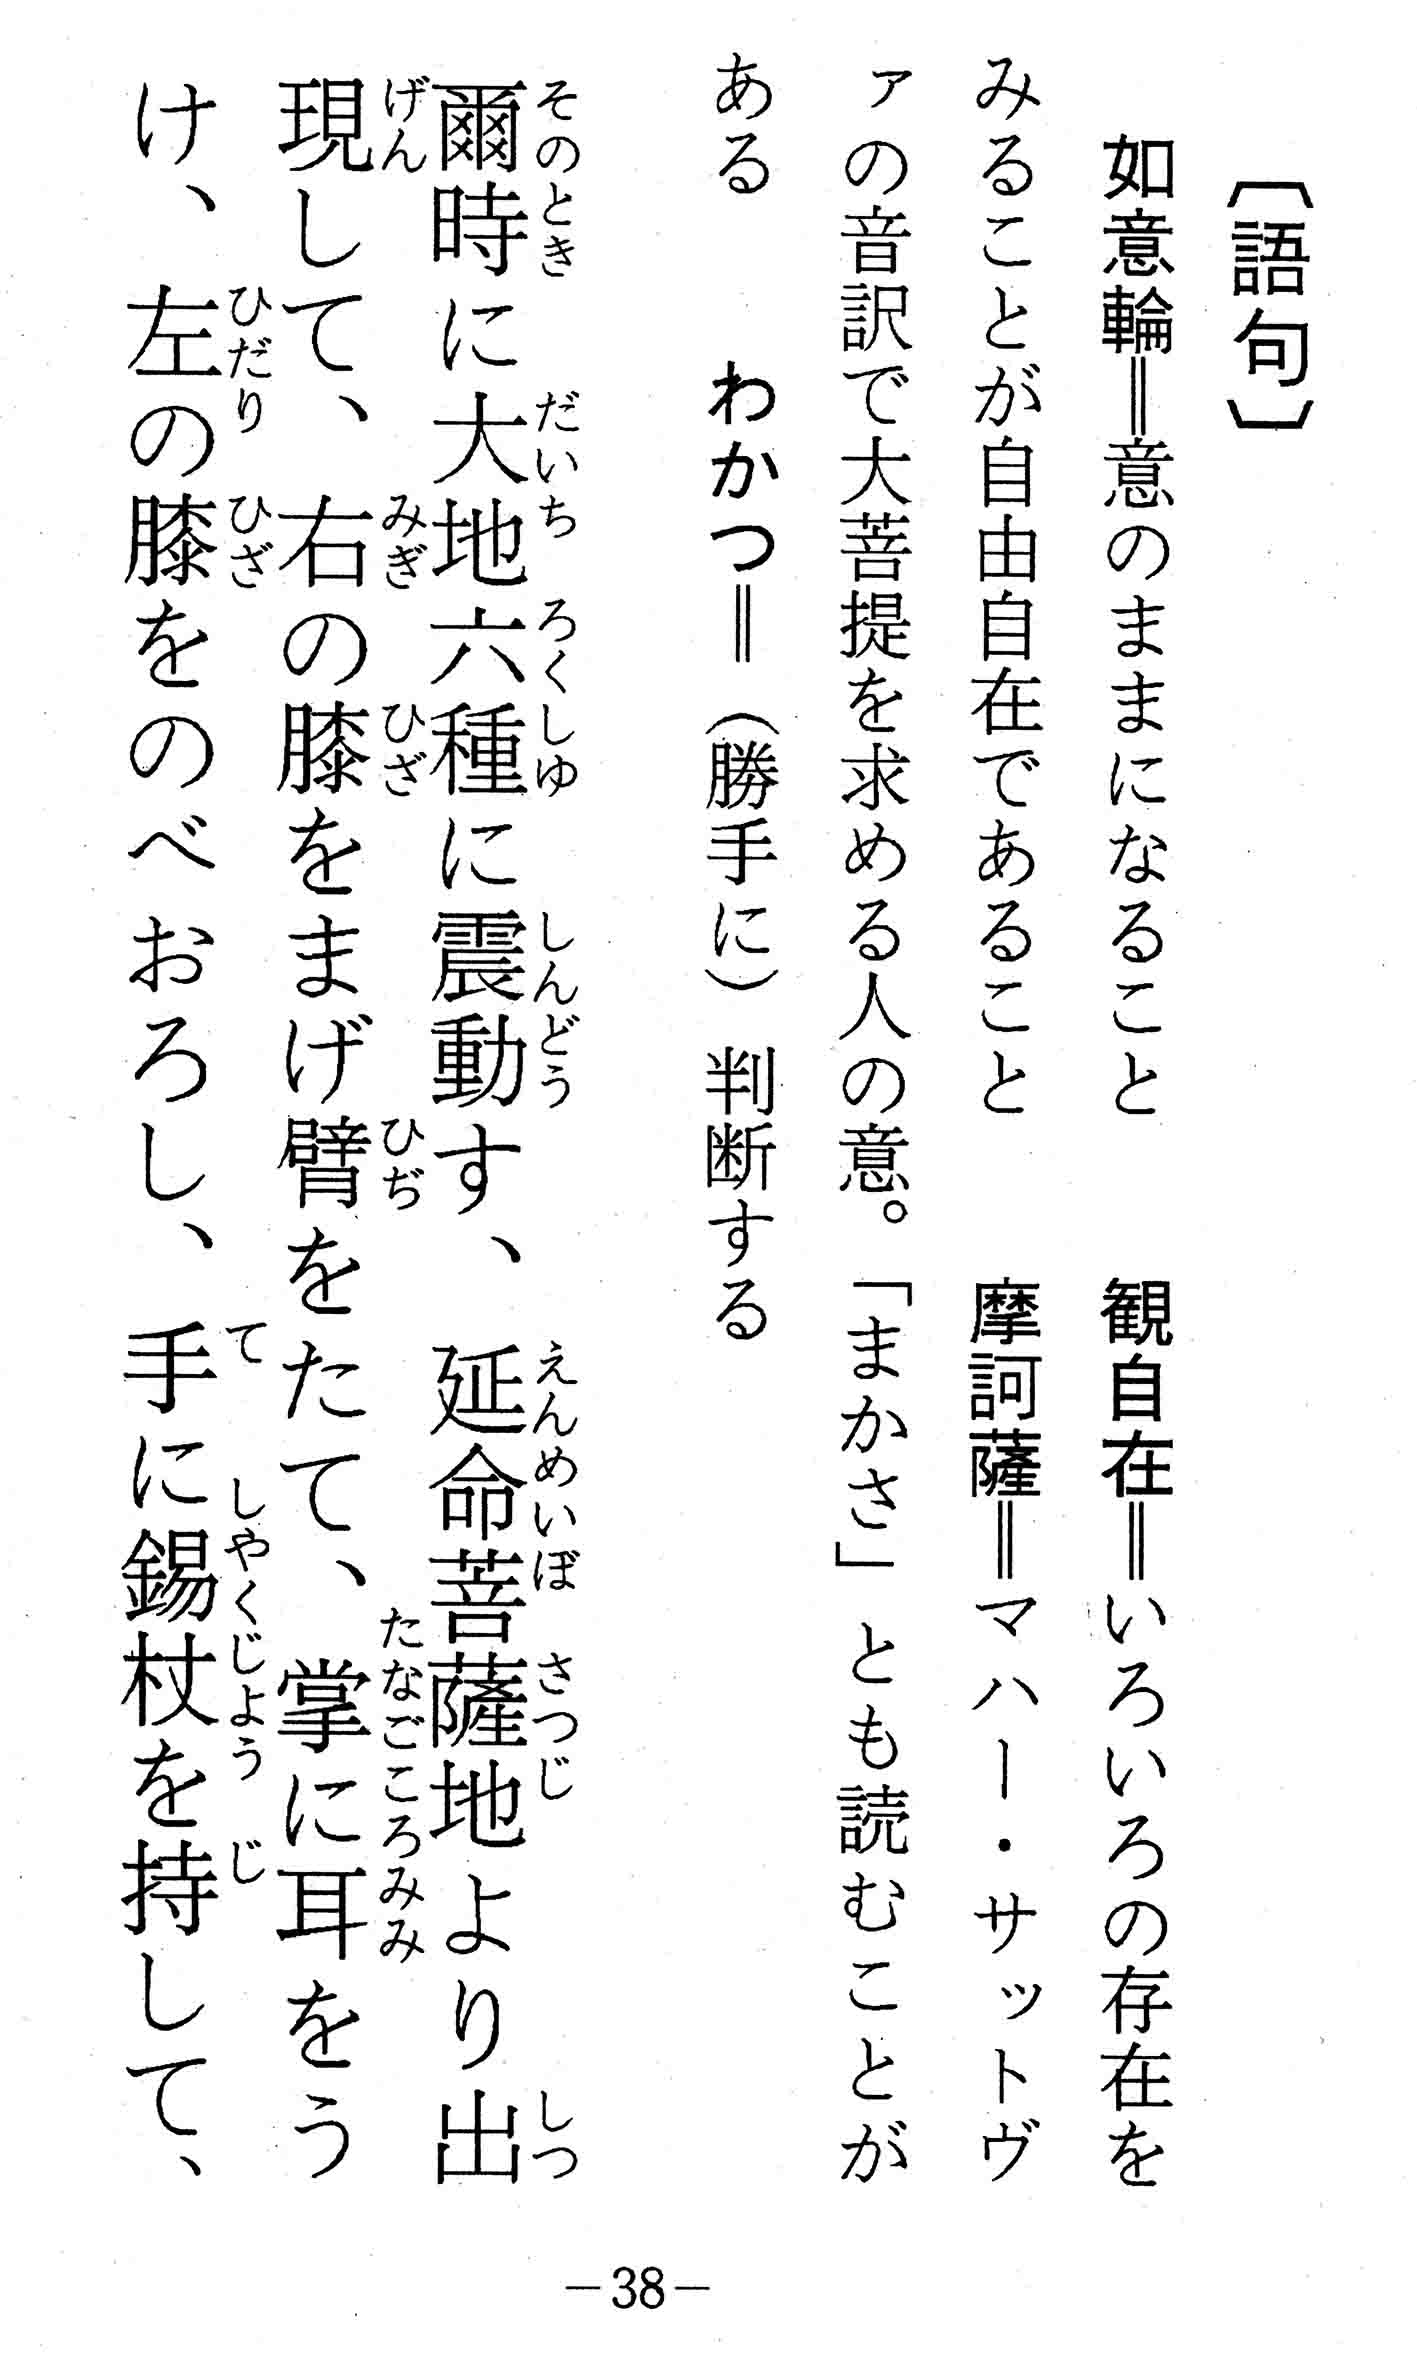 〔語句〕
如意輪＝意のままになること　観自在＝いろいろの存在を
みることが自由自在であること　摩訶薩＝マハー・サットヴ
ァの音訳で大菩提を求める人の意。「まかさ」とも読むことが
ある　わかつ＝（勝手に）判断する
そのとき だいち ろくしゆ しんどう えんめいぼさつじ しつ
爾時に大地六種に震動す、延命菩薩地より出
げん みぎ ひざ ひぢ たなごころ みみ
現して、右の膝をまげ臂をたて、掌に耳をう
ひだり ひざ て しやくじよう じ
け、左の膝をのべおろし、手に錫杖を持して、
－38－